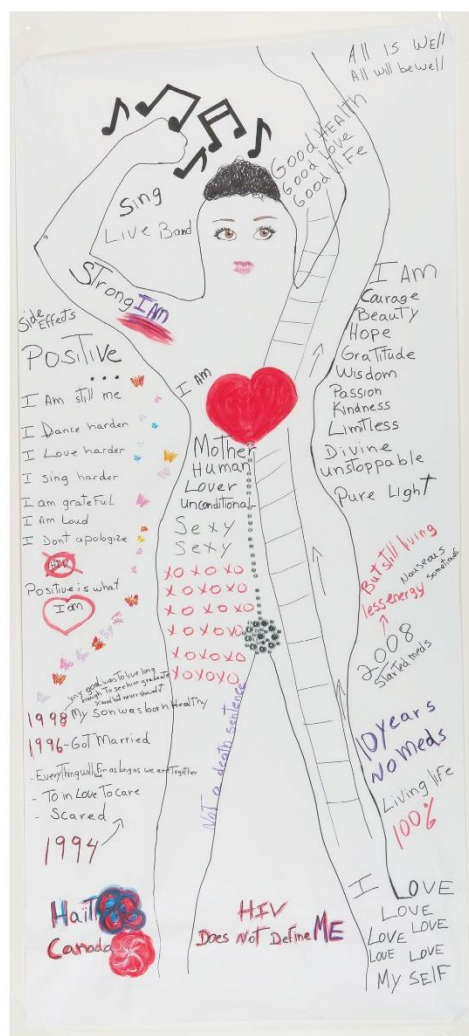 All is Well
All will be well
GOOD HEALTH
GOOD LOVE
GOOD life
Sing
Live Band
Strong I AM
Side Effects
POSITIVE
...
I Am still me
I Dance harder
I Love harder
I sing harder
I am grateful
I Am Loud
I Dont apologize
HIV
Positive is what
I am
I AM
Mother
Human
Lover
Unconditional
Sexy
Sexy
XOXOXO
XOXOXO
XOXOXO
XOXOXO
XOXOXO
XOXOXO
Not a death sentence
I AM
Courage
Beauty
Hope
Gratitude
Wisdom
Passion
Kindness
Limitless
Divine
unstoppable
Pure Light
But still living
less energy
Nauseous
sometimes
2008
Started meds
10 years
No Meds
Living life
100%
my goal was to live long
enough to see him graduate
1998 My son was born Healthy
1996-Got Married
- Everything will fin as long as we are together
- To in Love To Care
- Scared
1994
Haïti
Canada
HIV
Does Not Define ME
I LOVE
LOVE
LOVE LOVE
LOVE LOVE
MY SELF